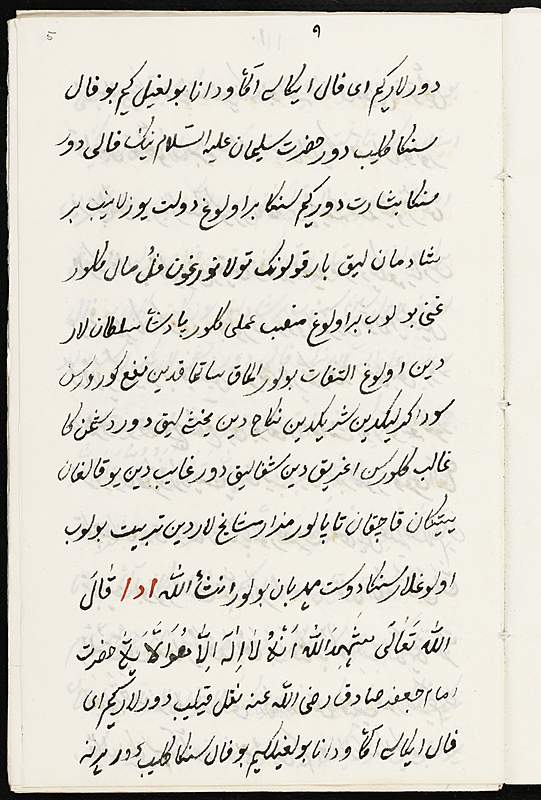 5
۹
دورلارکیم ای فال ایکاسی آکاه ودانا بولغیل کیم بو فال
سنکا کلیب دور حضرت سلیمان علیه السلام نینک فالی دور
سنکا بشارت دورکیم سنکا بر اولوغ دولت یوزلانیب بر
شادمان لیق بار قولونک تولا نورغون مال کلور
غنی بولوب بر اولوغ منصب عملی کلور پادشاه سلطان لار
دین اولوغ التفات بولور الماق ساتماقدین نفع کورورسن
سوداکرلیکدین شریکدین نکاح دین یخشی لیق دور دشمن کا
غالب کلورسن اغریق دین شفالیق دور غایب دین یوقالغان
ییتکان قاچقان تاپالور مزار مشایخ لاردین تربیت بولوب
اولوغلار سنکا دوست مهربان بولور انشاء الله ا د ا قال
الله تعالی شهد الله انه لا اله الا هو حضرت
امام جعفر صادق رضی الله عنه نقل قیلیب دورلارکیم ای
فال ایکاسی آکاه ودانا بولغیلکیم بو فال سنکا کلیب دور